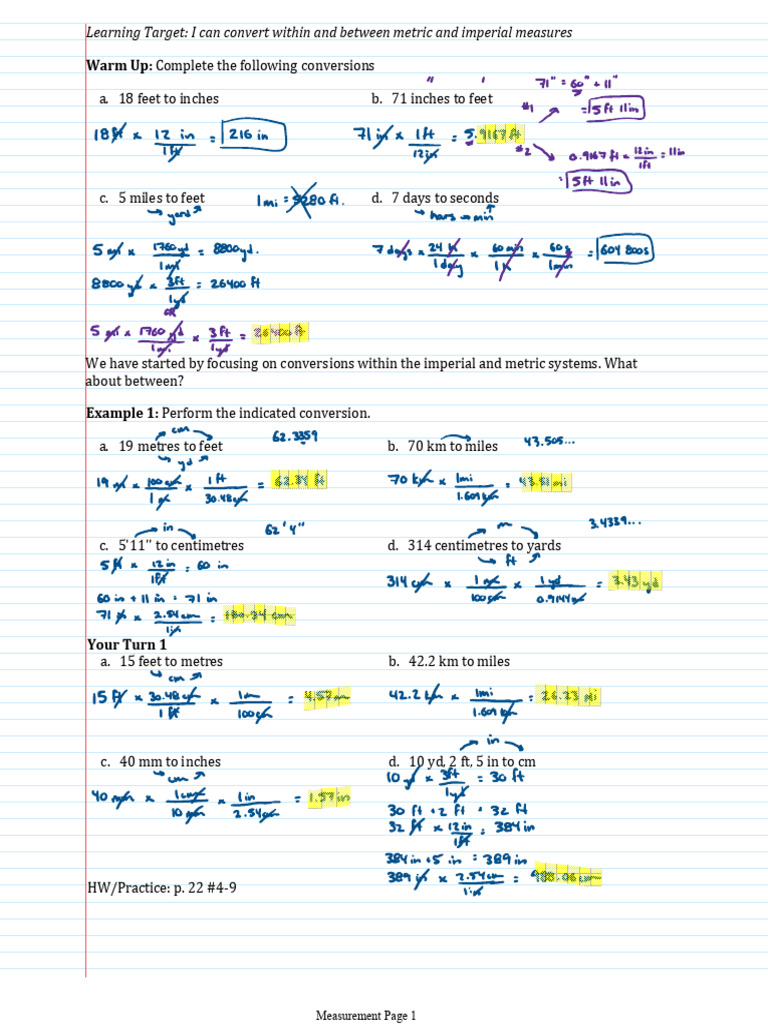 Learning Target: I can convert within and between metric and imperial measures
Warm Up: Complete the following conversions
a. 18 feet to inches
18 ft × 12 in / 1 ft = 216 in
b. 71 inches to feet
" '
71 in × 1 ft / 12 in = 5.9167 ft
71" = 60" + 11"
#1 = 5 ft 11 in
#2 0.9167 ft × 12 in / 1 ft = 11 in
= 5 ft 11 in
c. 5 miles to feet
→ yard
1 mi = 5280 ft.
5 mi × 1760 yd / 1 mi = 8800 yd.
8800 yd × 3 ft / 1 yd = 26400 ft
OR
5 mi × 1760 yd / 1 mi × 3 ft / 1 yd = 26400 ft
d. 7 days to seconds
→ hours → min
7 days × 24 h / 1 day × 60 min / 1 h × 60 s / 1 min = 604 800 s
We have started by focusing on conversions within the imperial and metric systems. What
about between?
Example 1: Perform the indicated conversion.
cm
a. 19 metres to feet
→ yd
62.3359
19 m × 100 cm / 1 m × 1 ft / 30.48 cm = 62.34 ft
62'4"
b. 70 km to miles
43.505...
70 km × 1 mi / 1.609 km = 43.51 mi
in
c. 5'11" to centimetres
5 ft × 12 in / 1 ft = 60 in
60 in + 11 in = 71 in
71 in × 2.54 cm / 1 in = 180.34 cm
m
d. 314 centimetres to yards
→ ft
3.4339...
314 cm × 1 m / 100 cm × 1 yd / 0.9144 m = 3.43 yd
Your Turn 1
a. 15 feet to metres
→ cm
15 ft × 30.48 cm / 1 ft × 1 m / 100 cm = 4.57 m
b. 42.2 km to miles
42.2 km × 1 mi / 1.609 km = 26.23 mi
c. 40 mm to inches
→ cm
40 mm × 1 cm / 10 mm × 1 in / 2.54 cm = 1.57 in
in
d. 10 yd, 2 ft, 5 in to cm
10 yd × 3 ft / 1 yd = 30 ft
30 ft + 2 ft = 32 ft
32 ft × 12 in / 1 ft = 384 in
384 in + 5 in = 389 in
389 in × 2.54 cm / 1 in = 988.06 cm
HW/Practice: p. 22 #4-9
Measurement Page 1